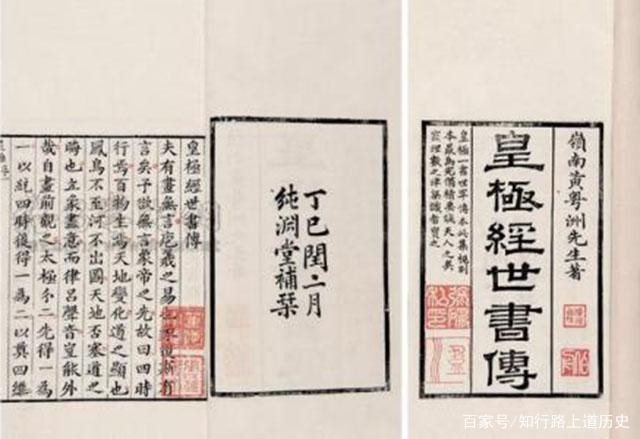 嶺南黃粵洲先生著
皇極經世書傳
皇極一書世罕傳本此集
本最為完備精要誠天人之奧
數之津識者寶之
丁巳閏二月
純淵堂補栞
皇極經世書傳
夫有畫無言庖羲之易也斯有
言矣予欲無言象帝之先故曰四時
行焉百物生焉天地變化道之顯也
鳳鳥不至河不出圖天地否塞道之
晦也立象盡意而律呂聲音豈能外
哉自畫前觀之太極分二先得一為
一以統四時後得一為二以奠四維
百家号/知行路上道历史